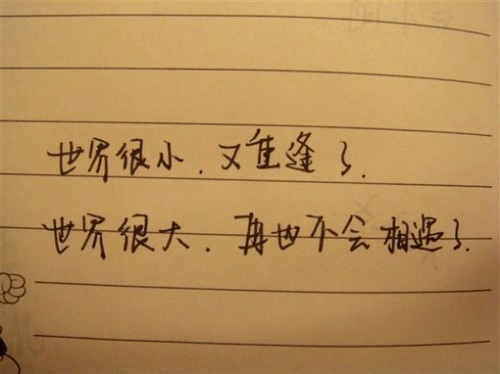 世界很小.又重逢了.
世界很大.再也不会相遇了.